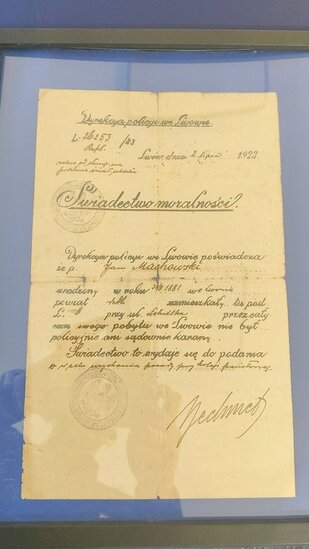 Dyrekcya policyi we Lwowie
L. 26253/23
Lwów, dnia 2 lipca 1923
Świadectwo moralności
Dyrekcya policyi we Lwowie poświadcza
że p. Jan Machowski
urodzony w roku 1881 we Lwowie
powiat zamieszkały tu pod
L. przy ul. przez cały
czas swego pobytu we Lwowie nie był
policyjnie ani sądownie karany.
Świadectwo to wydaje się do podania
w celu uzyskania posady przy kolei państwowej.